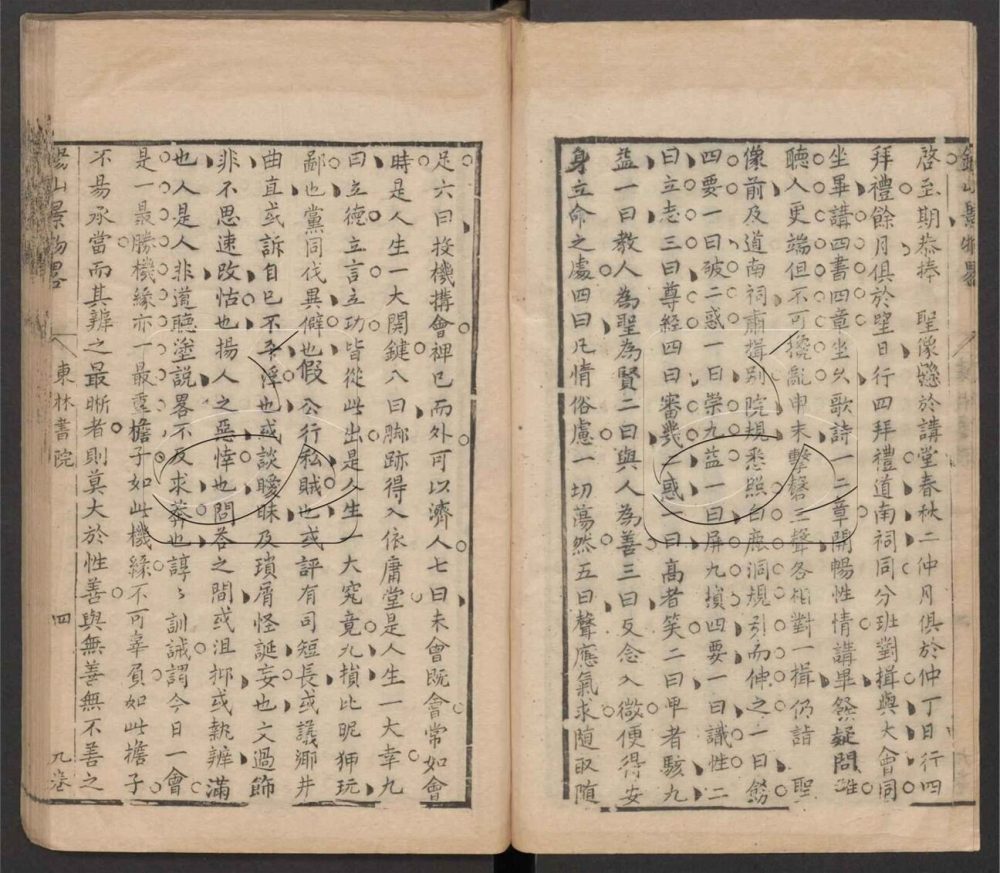 錫山景物畧
啓至期恭捧　聖像懸於講堂春秋二仲月俱於仲丁日行四
拜禮餘月俱於望日行四拜禮道南祠同分班對揖與大會同
坐畢講四書四章坐久歌詩一二章開暢性情講畢發疑問難
聽人更端但不可攙亂申末擊磬三聲各相對一揖仍詣　聖
像前及道南祠肅揖別院規悉照白鹿洞規引而伸之一曰飭
四要一曰破二惑一曰崇九益一曰屏九損四要一曰識性二
曰立志三曰尊經四曰審幾二惑一曰高者笑二曰卑者駭九
益一曰教人為聖為賢二曰與人為善三曰反念入微便得安
身立命之處四曰凡情俗慮一切蕩然五曰聲應氣求隨取隨
足六曰投機搆會裨已而外可以濟人七曰未會既會常如會
時是人生一大關鍵八曰脚跡得入依庸堂是人生一大幸九
曰立德立言立功皆從此出是人生一大究竟九損比昵狎玩
鄙也黨同伐異僻也假公行私賊也或評有司短長或議鄉井
曲直或訴自已不平浮也或談曖昧及瑣屑怪誕妄也文過飾
非不思速改怙也揚人之惡悻也問荅之間或沮抑或執辨滿
也人是人非道聽塗説畧不及求莽也諄〻訓誡謂今日一會
是一最勝機緣亦一最重擔子如此機緣不可辜負如此擔子
不易承當而其辨之最晰者則莫大於性善與無善無不善之
錫山景物畧　東林書院　四　九卷